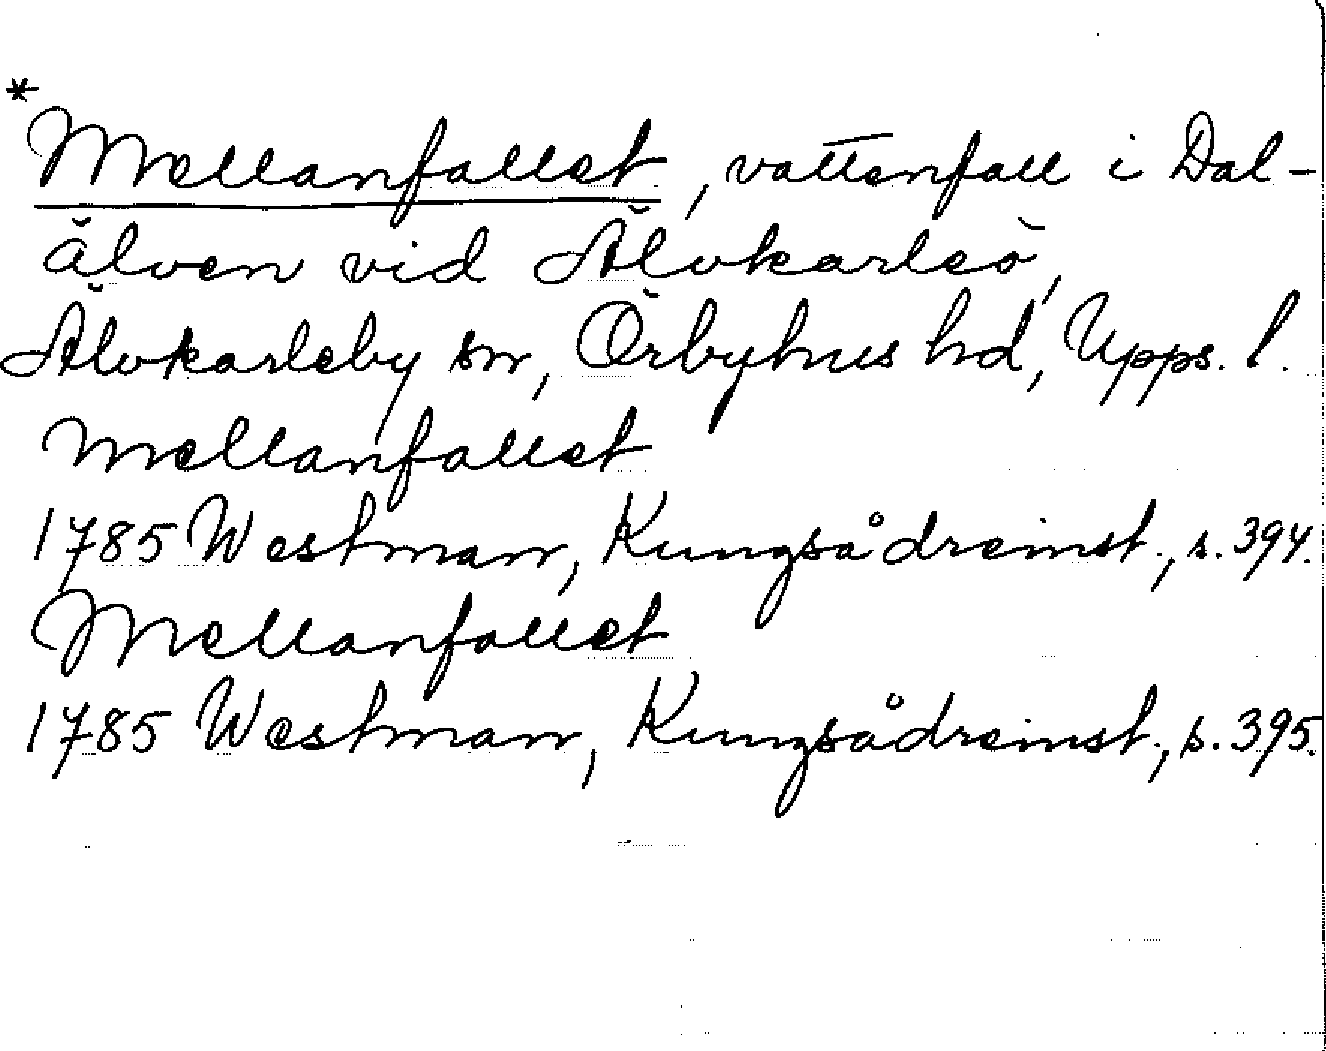 *
Mellanfallet, vattenfall i Dal-
älven vid Älvkarleö,
Älvkarleby sn, Örbyhus hd, Upps. l.
Mellanfallet
1785 Westman, Kungsådreinst., s. 394.
Mellanfallet
1785 Westman, Kungsådreinst., s. 395.